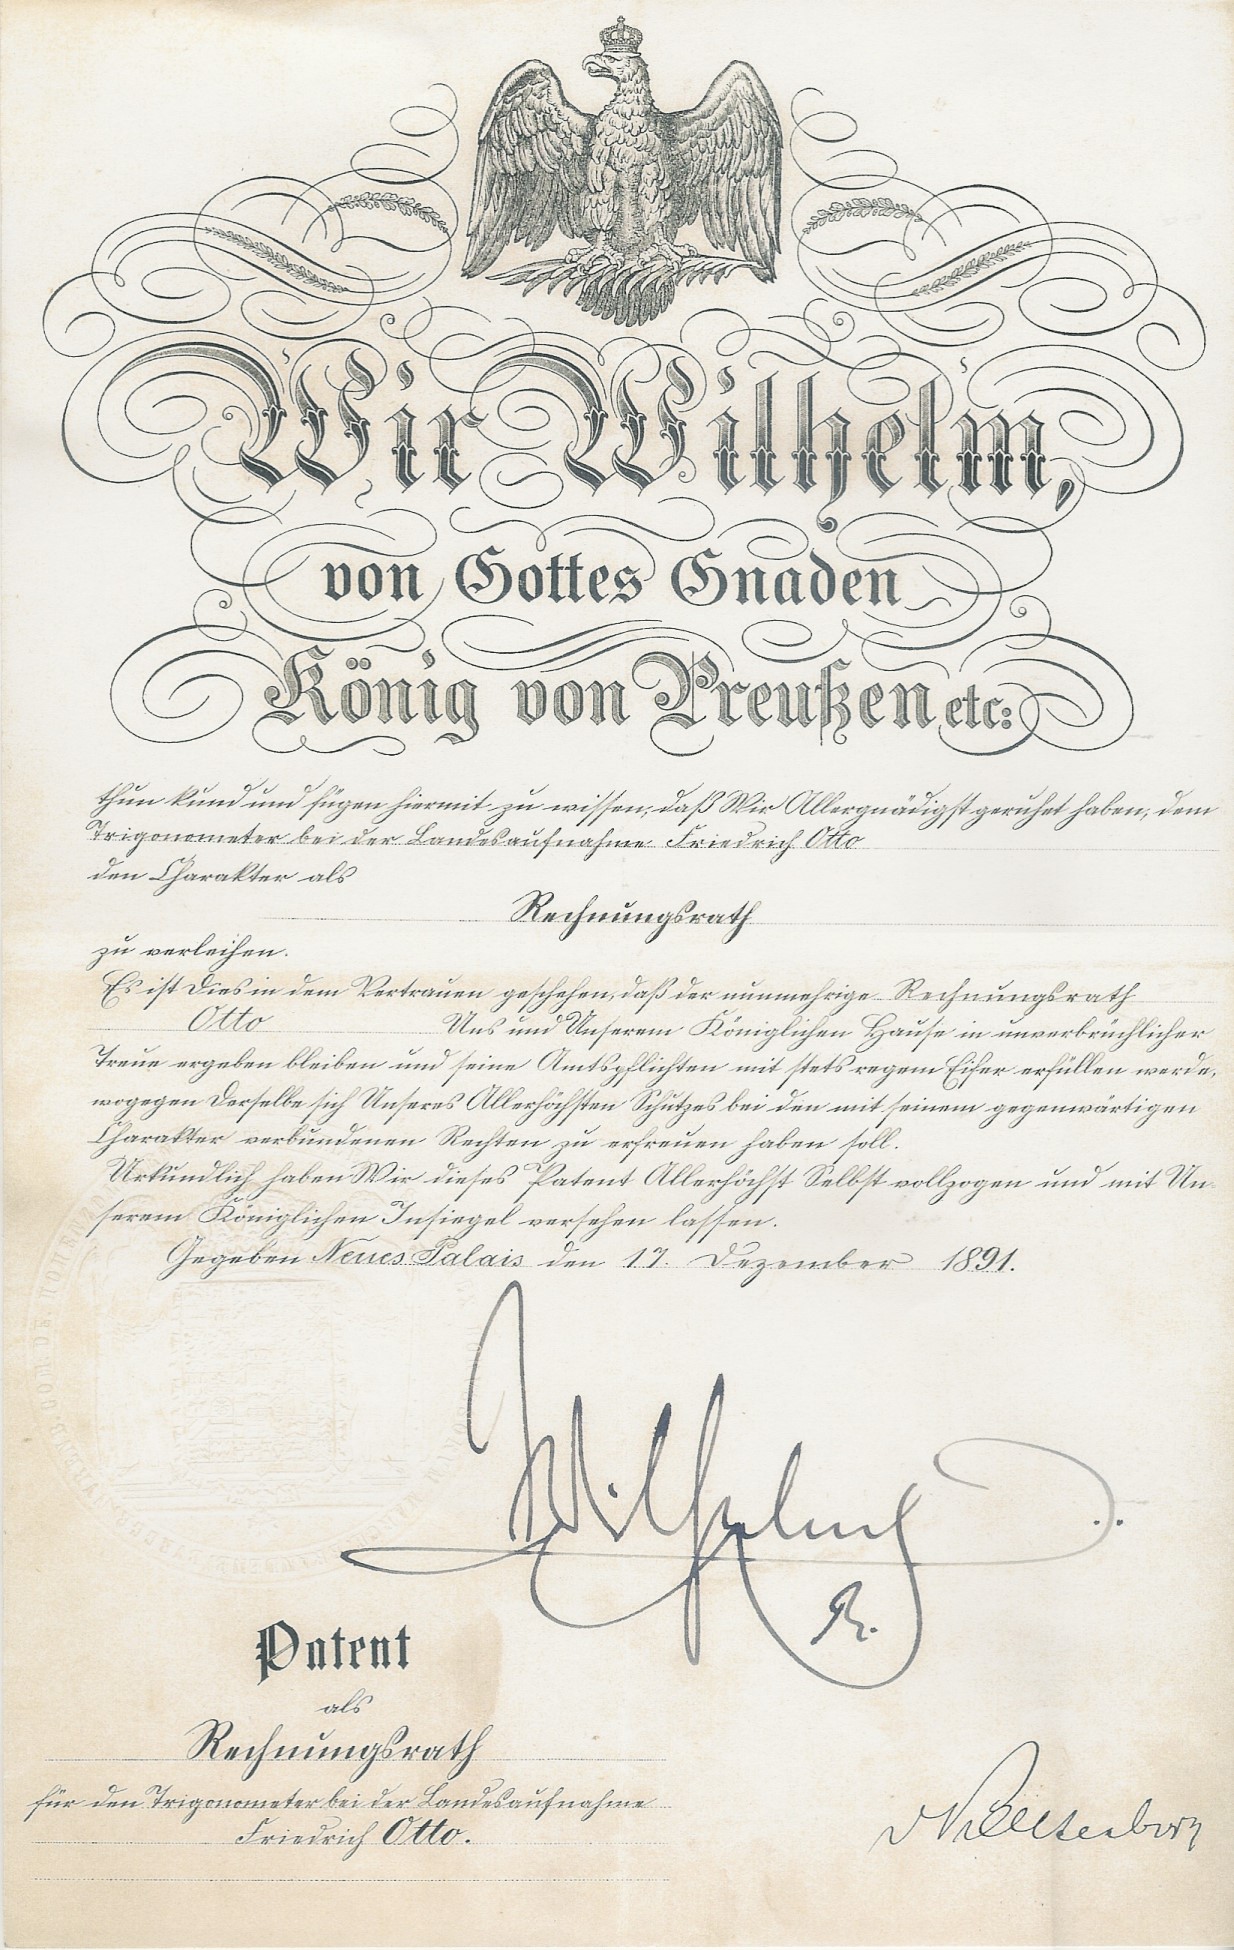 Wir Wilhelm,
von Gottes Gnaden
König von Preußen etc:
thun kund und fügen hiermit zu wissen, daß Wir Allergnädigst geruhet haben, dem
Trigonometer bei der Landesaufnahme Friedrich Otto
den Charakter als
Rechnungsrath
zu verleihen.
Es ist Dies in dem Vertrauen geschehen, daß der nunmehrige Rechnungsrath
Otto Uns und Unserem Königlichen Hause in unverbrüchlicher
Treue ergeben bleiben und seine Amtspflichten mit stets regem Eifer erfüllen werde,
wogegen Derselbe sich Unseres Allerhöchsten Schutzes bei den mit seinem gegenwärtigen
Charakter verbundenen Rechten zu erfreuen haben soll.
Urkundlich haben Wir dieses Patent Allerhöchst Selbst vollzogen und mit Un-
serem Königlichen Insiegel versehen lassen.
Gegeben Neues Palais den 17. Dezember 1891.
Wilhelm
R.
Patent
als
Rechnungsrath
für den Trigonometer bei der Landesaufnahme
Friedrich Otto.